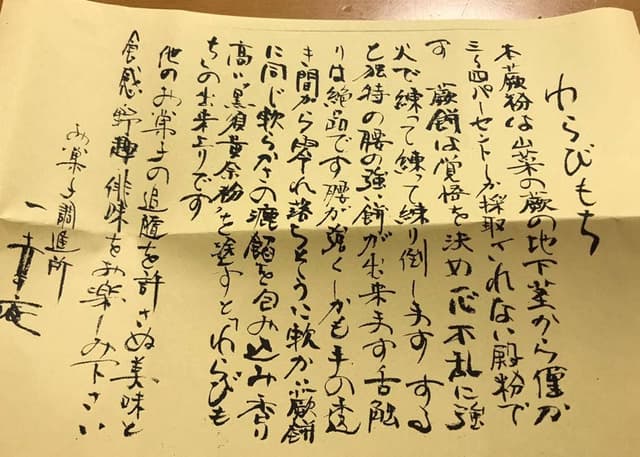 わらびもち
本蕨粉は山菜の蕨の地下茎から僅か
三~四パーセントしか採取されない澱粉で
す 蕨餅は覚悟を決め一心不乱に強
火で練って練って練り倒します する
と独特の腰の強い餅が出来ます 舌触
りは絶品です 腰が強くしかも手の透
き間から零れ落ちそうに軟かい蕨餅
に同じ軟らかさの漉餡を包み込み香り
高い「黒須黄奈粉」を塗すと「わらびも
ち」の出来上りです
他のお菓子の追随を許さぬ美味と
食感・野趣・俳味をお楽しみ下さい
お菓子調進所
一幸庵